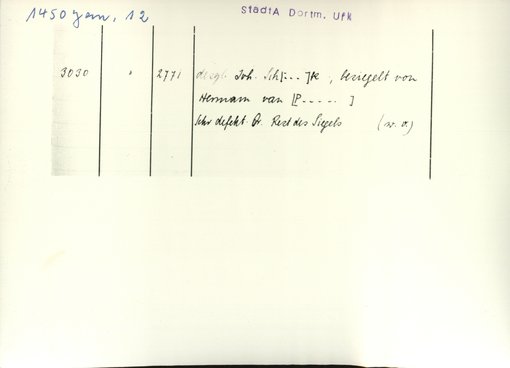 1450 Jan. 12
StadtA Dortm. Urk
3030 " 2771 desgl. Joh. Sch[...]te, besiegelt von
Hermann van [P.....]
Sehr defekt. Pr. Rest des Siegels (w. o)